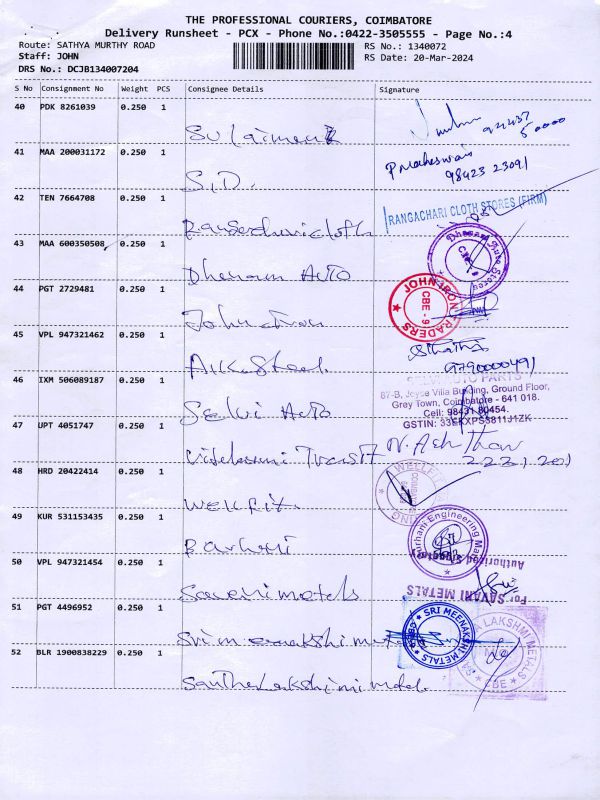 THE PROFESSIONAL COURIERS, COIMBATORE
Delivery Runsheet - PCX - Phone No.:0422-3505555 - Page No.:4
Route: SATHYA MURTHY ROAD
RS No.: 1340072
Staff: JOHN
RS Date: 20-Mar-2024
DRS No.: DCJB134007204
S No Consignment No Weight PCS Consignee Details Signature
40 PDK 8261039 0.250 1
Sulaiman
94437
50000
41 MAA 200031172 0.250 1
P Maheswari
98423 23091
S.D.
42 TEN 7664708 0.250 1
RANGACHARI CLOTH STORES (FIRM)
cloth
43 MAA 600350508 0.250 1
Dhanam Auto Stores
CBE
Dhanam Auto
44 PGT 2729481 0.250 1
JOHN IRON TRADERS
CBE - 9
John
45 VPL 947321462 0.250 1
9790000491
46 IXM 506089187 0.250 1
SELVI AUTO PARTS
87-B, Joyse Villa Building, Ground Floor,
Grey Town, Coimbatore - 641 018.
Cell: 98431 80454.
GSTIN: 33EKXPS3811J1ZK
Selvi Auto
47 UPT 4051747 0.250 1
Transit
48 HRD 20422414 0.250 1
Wellfit
49 KUR 531153435 0.250 1
Engineering
50 VPL 947321454 0.250 1
Authorized Signatory
For SAVANI METALS
Savani metals
51 PGT 4496952 0.250 1
SRI MEENAKSHI METALS
CBE
Sri meenakshi
52 BLR 1900838229 0.250 1
LAKSHMI METALS
CBE
Lakshmi metal.